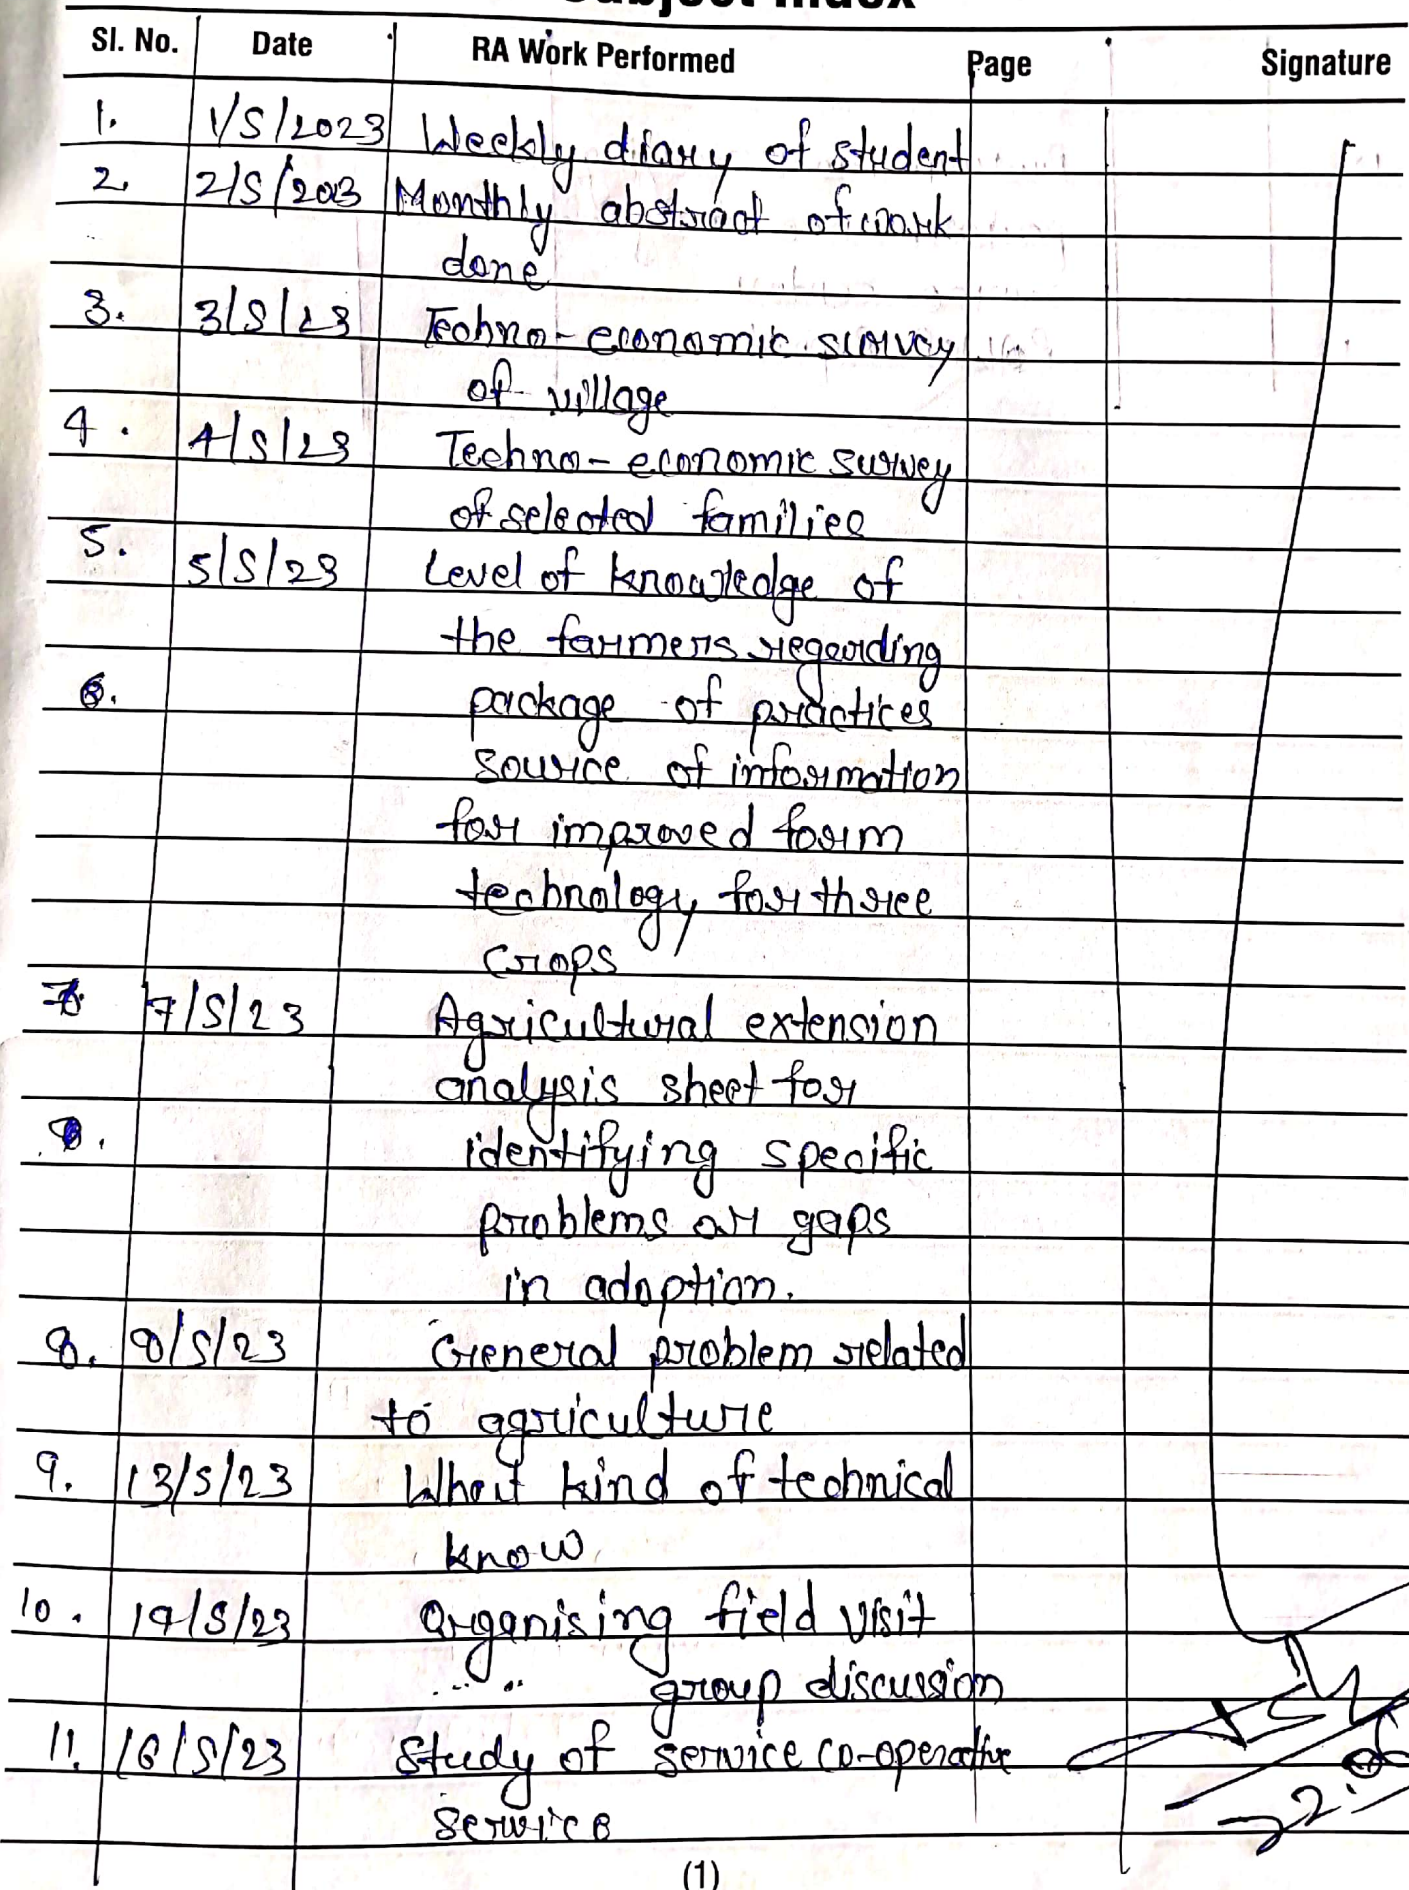 Subject Index
Sl. No. Date RA Work Performed Page Signature
1. 1/5/2023 Weekly diary of student
2. 2/5/2023 Monthly abstract of work
done
3. 3/5/23 Techno-economic survey
of village
4. 4/5/23 Techno-economic survey
of selected families
5. 5/5/23 Level of knowledge of
the farmers regarding
6. package of practices
source of information
for improved form
technology for three
crops
7. 7/5/23 Agricultural extension
analysis sheet for
identifying specific
problems or gaps
in adoption.
8. 8/5/23 General problem related
to agriculture
9. 13/5/23 What kind of technical
know
10. /5/23 Organising field visit
group discussion
11. 16/5/23 Study of service co-operative
service
(1)